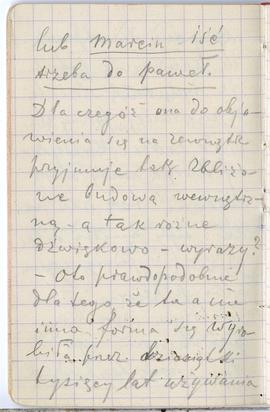 lub Marcin iść
trzeba do paweł.
Dla czegóż ona do obja-
wienia się na zewnątrz
przyjmuje tak zbliżo-
ne budową wewnętrz-
ną - a tak różne
dźwiękowo - wyrazy?
- Oto prawdopodobnie
dla tego że ta a nie
inna forma się wyro-
biła przez dziesiątki
tysięcy lat używania